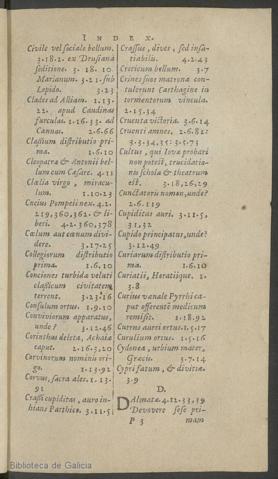 INDEX.
Civile vel sociale bellum.
3.18.2. ex Drusiana
seditione. 3. 18. 10.
Marianum. 3.21. sub
Lepido. 3.23
Clades ad Alliam. 1.13.
22. apud Caudinas
furculas. 1.16.33. ad
Cannas. 2.6.66
Classium distributio pri-
ma. 1.6.10
Cleopatræ & Antonii bel-
lum cum Cæsare. 4.11
Clœlia virgo, miracu-
lum. 1.10.23
Cneius Pompeii nex. 4.2.
259,360,362. & li-
beri. 4.2.360,378
Cœlum aut cœnum divi-
dere. 3.17.25
Collegiorum distributio
prima. 1.6.10
Conciones turbida veluti
classicum civitatem
terrent. 3.23.16
Consulum ortus. 1.9.10
Conviviorum apparatus,
unde? 3.12.46
Corinthus deleta, Achaiæ
caput. 2.16.3,20
Corvinorum nominis ori-
go. 1.13.92
Corvus, sacra ales. 1.13.
91
Crassi cupiditas, auro in-
hians Parthico. 3.11.5
Crassus, dives, sed insa-
tiabilis. 4.2.43
Creticum bellum. 3.7
Crines suos matronæ con-
tulerunt Carthagine in
tormentorum vincula.
2.15.34
Cruenta victoria. 3.6.14
Cruenti amnes. 2.6.82:
3.3.34,35: 3.5.73
Cultus, qui leva probari
non potest, crucidatia-
nus schola & theatrum
est. 3.18,26,29
Cunctatoris nomen, unde?
2.6.119
Cupiditas auri. 3.11.5,
31,32
Cupido principatus, unde?
3.12.49
Curiarum distributio pri-
ma. 1.6.10
Curiatii, Horatiique. 1.
3.8
Curius venale Pyrrhi ca-
put offerente medicum
remisit. 1.18.92
Currus aurei ortus 1.5.17
Curulium ortus. 1.5.16
Cydonea, urbium mater,
Græcis. 3.7.14
Cypri fatum, & divitiæ.
3.9
D.
Dalmatæ. 4.12.33,39
Devovere sese pri-
P 3 mum
Biblioteca de Galicia